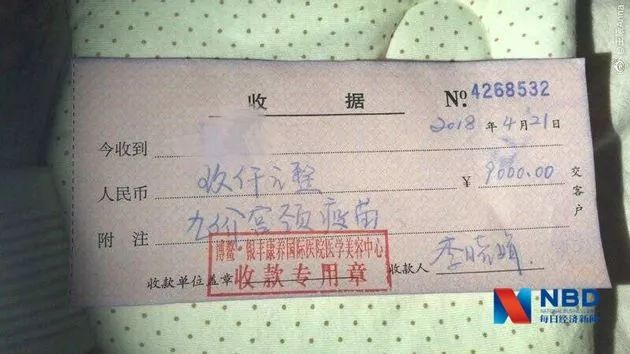 收据 №4268532
2018年4月21日
今收到
人民币 玖仟元整 ￥9000.00
附注 九价宫颈疫苗
交客户
博鳌·银丰康养国际医院医学美容中心
收款专用章
收款单位盖章 收款人 李晓娟
NBD
NATIONAL BUSINESS DAILY
每日经济新闻